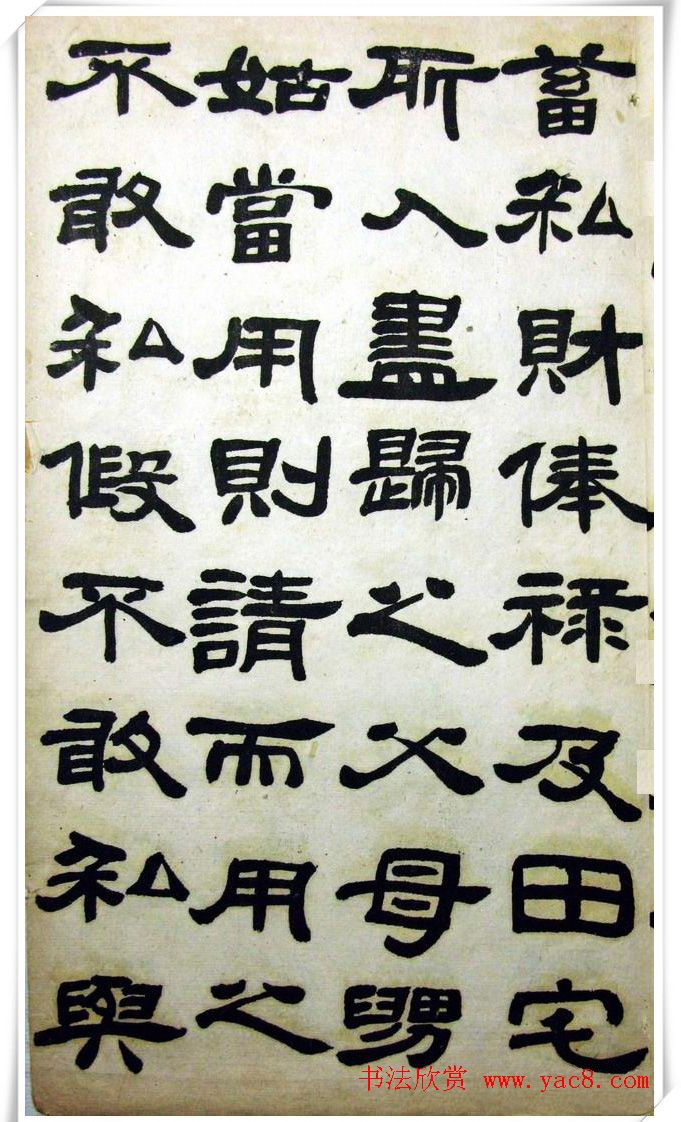 蓄私財俸祿及田宅
所入盡歸之父母舅
姑當用則請而用之
不敢私假不敢私與
书法欣赏 www.yac8.com